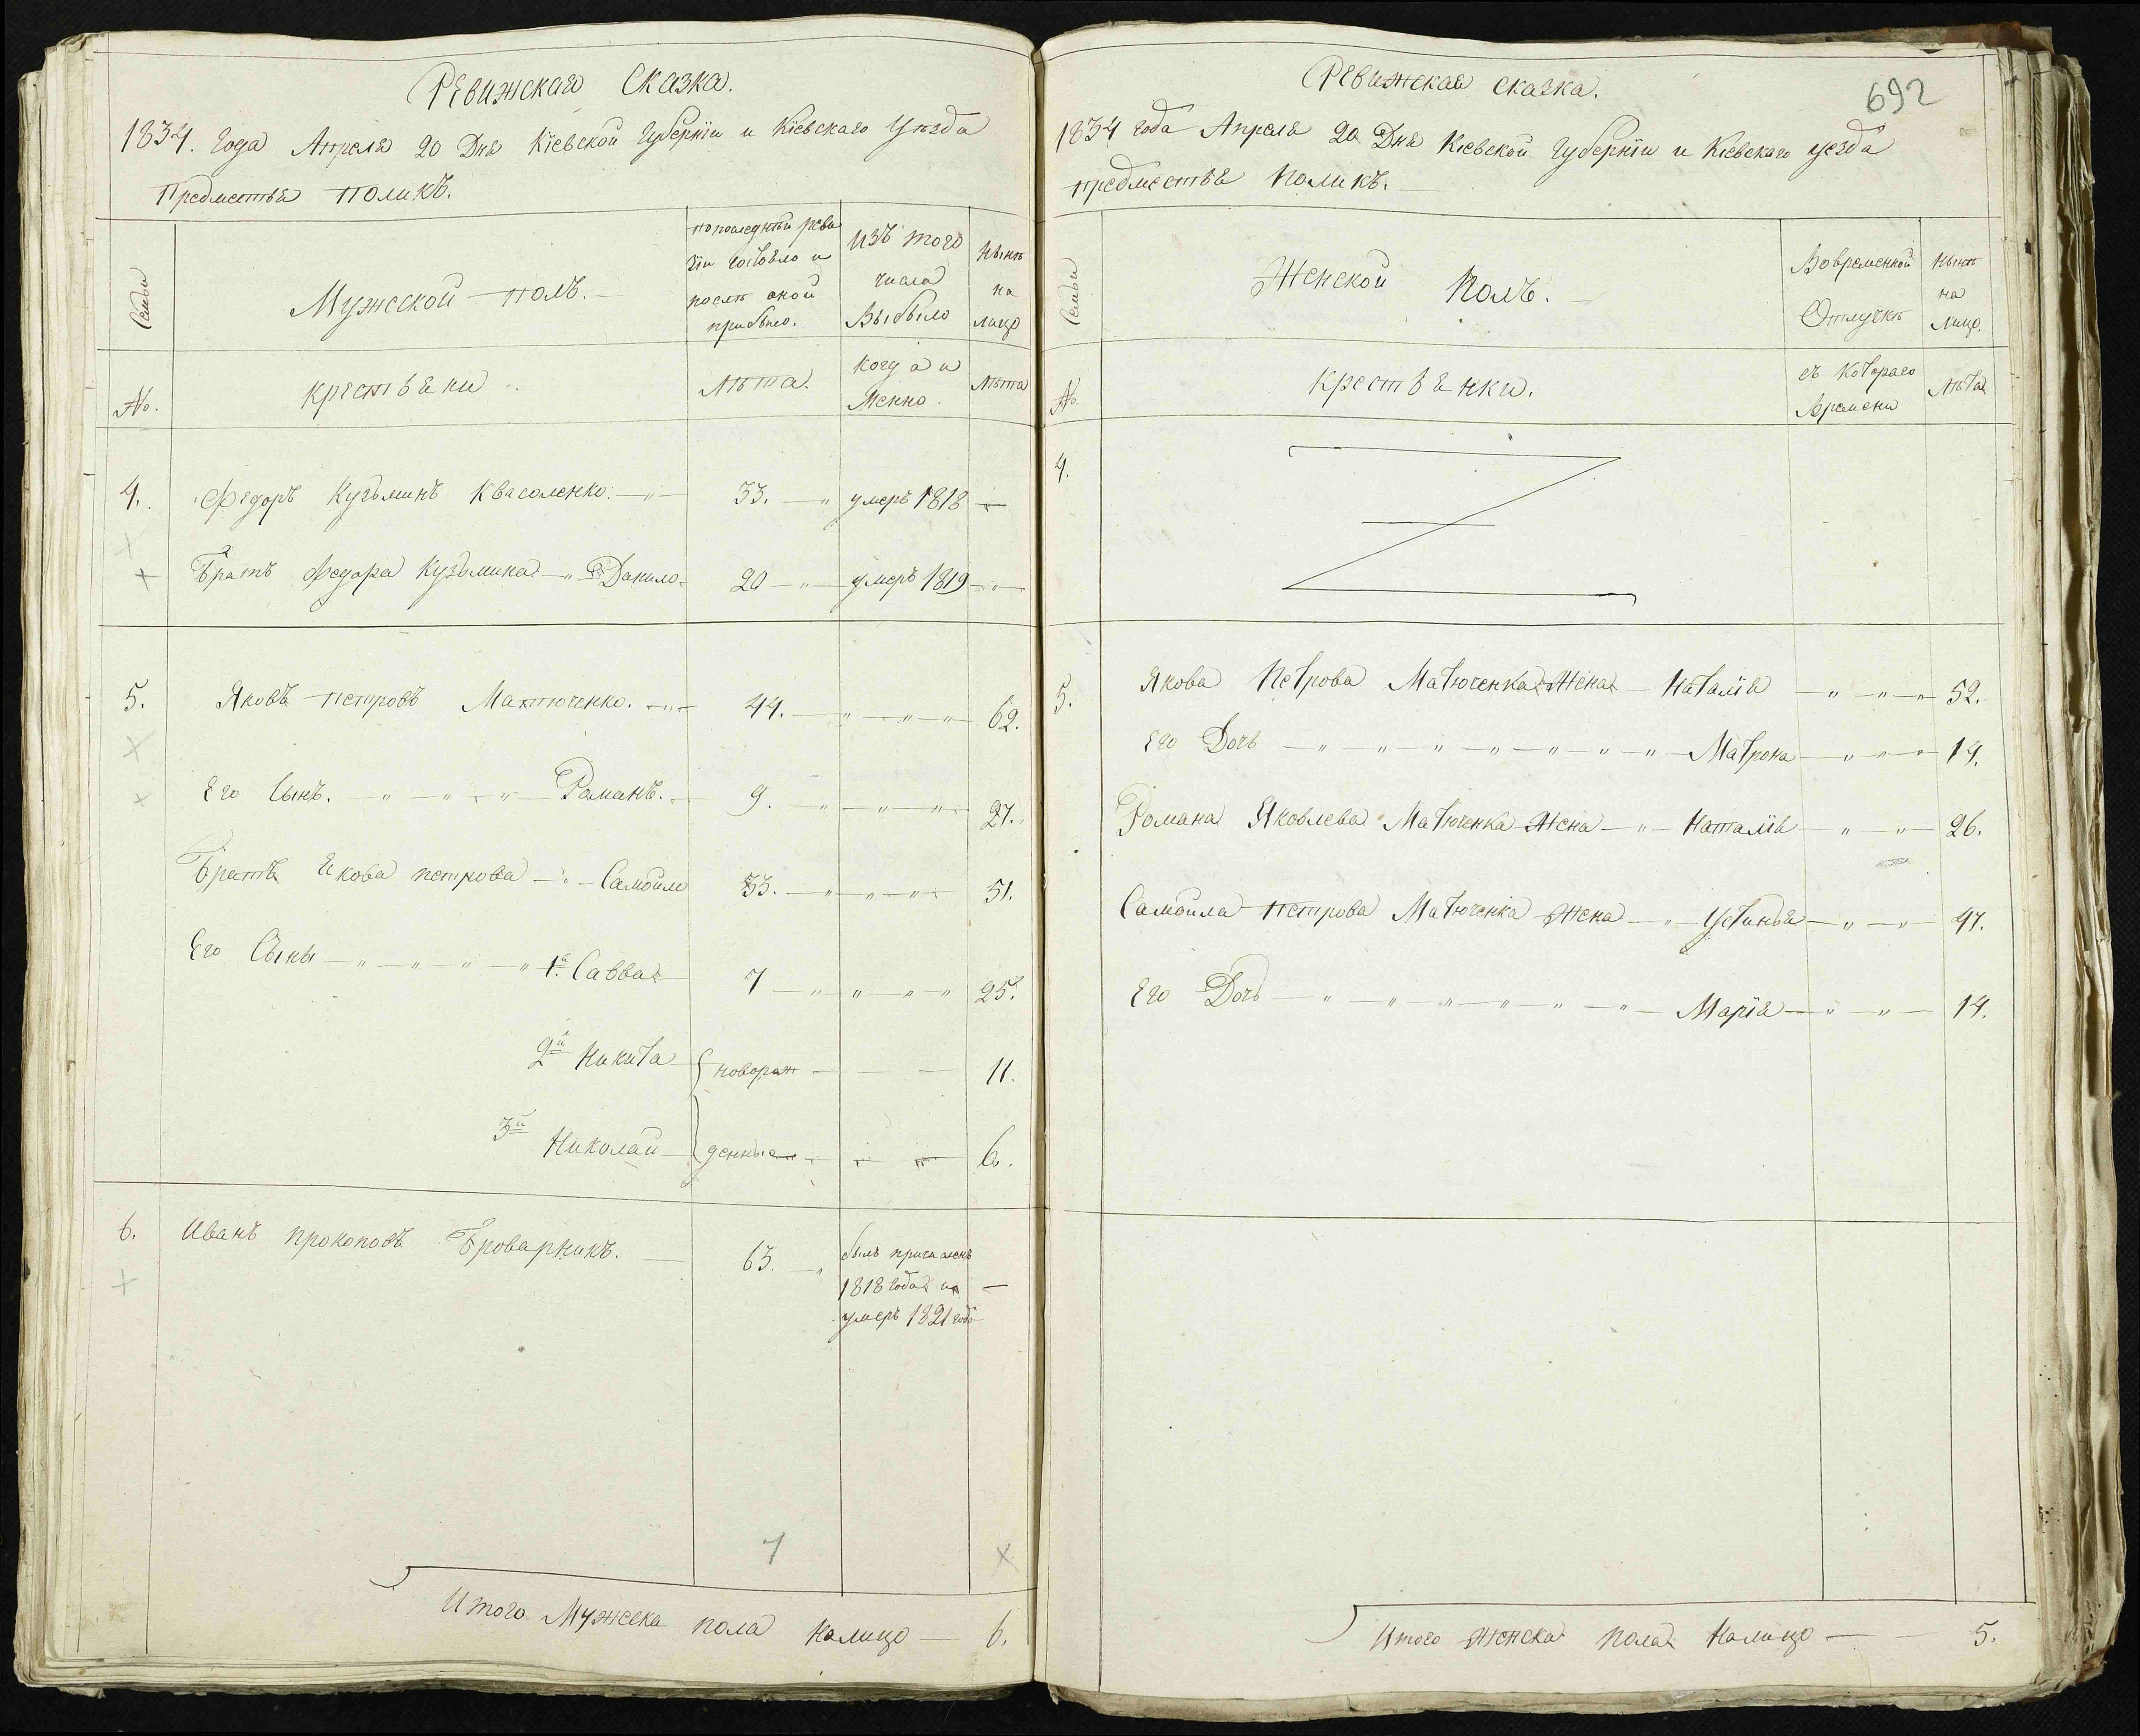 Ревижская Сказка.
1834. Года Апреля 20 Дня Кіевской Губерніи и Кіевскаго Уѣзда
Предместья поликъ.
Семьи
Мужеской полъ.
по последнѣй реви
зіи состояло и
послѣ оной
прибыло.
Изъ того
числа
Выбыло
Нынѣ
на
лицо
№.
крестьяни.
Лѣта.
Когда и
Менно.
Лѣта
4. Федоръ Кузьминъ Квасоленко. 33. умеръ 1818
Братъ Федора Кузьмина Данило 20 умеръ 1819
5. Яковъ петровъ Матюченко. 44. 62.
Его Сынъ. Романъ. 9. 27.
Братъ Якова петрова Самойло 33. 51.
Его Сыны 1й Савва 7 25.
2й Никита новорож 11.
3й Николай денные 6.
6. Иванъ прокоповъ Броварникъ. 63. былъ причисленъ
1818 года и
умеръ 1821 года
7
Итого Мужеска пола Налицо 6.
692
Ревижская сказка.
1834 года Апреля 20 Дня Кіевской Губерніи и Кіевскаго уезда
предместья Поликъ.
Семьи
Женской Полъ.
Вовременной
Отлучкѣ
Нынѣ
на
Лицо.
№
крестьянки.
съ Котораго
Времени
Лѣта
4.
5. Якова Петрова Матюченка Жена Наталія 52.
Его Дочь Матрона 14.
Романа Яковлева Матюченка Жена Наталія 26.
Самойла петрова Матюченка Жена Устинья 47.
Его Дочь Марія 14.
Итого Женска Пола Налицо 5.